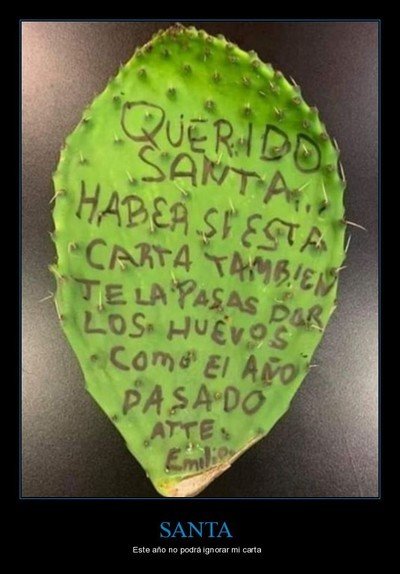 QUERIDO
SANTA...
HABER SI ESTA
CARTA TAMBIEN
TE LA PASAS POR
LOS HUEVOS
COMO El AÑO
PASADO
ATTE.
Emilio
SANTA
Este año no podrá ignorar mi carta